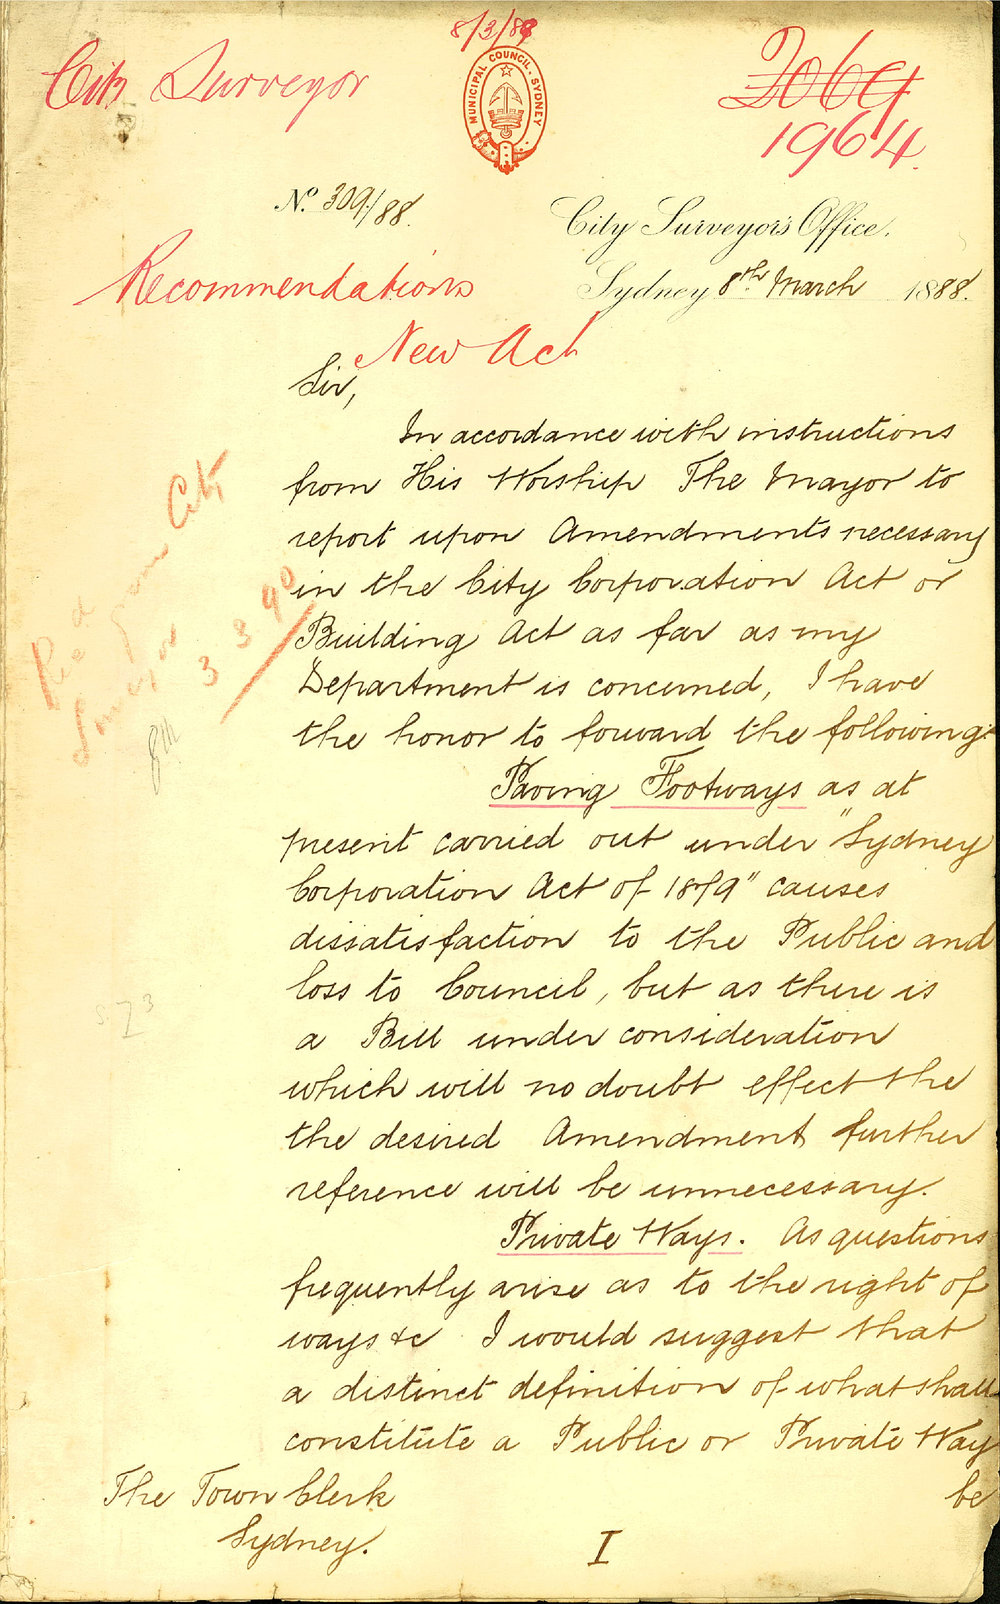 8/3/89
City Surveyor
MUNICIPAL COUNCIL. SYDNEY
2069
1964.
No. 309/88.
City Surveyor's Office.
Recommendations
Sydney 8th March 1888.
New Act
Sir,
In accordance with instructions
from His Worship The Mayor to
report upon Amendments necessary
in the City Corporation Act or
Building Act as far as my
Department is concerned, I have
the honor to forward the following:
Paving Footways as at
present carried out under "Sydney
Corporation Act of 1879" causes
dissatisfaction to the Public and
loss to Council, but as there is
a Bill under consideration
which will no doubt effect the
the desired Amendment further
reference will be unnecessary.
Private Ways. As questions
frequently arise as to the right of
ways &c I would suggest that
a distinct definition of what shall
constitute a Public or Private Way
be
The Town Clerk
Sydney.
I
Recd from City
Surveyor
3 3 90